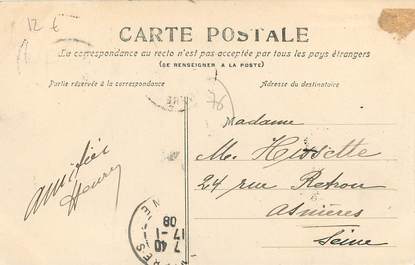 12 €
CARTE POSTALE
La correspondance au recto n'est pas acceptée par tous les pays étrangers
(SE RENSEIGNER A LA POSTE)
Partie réservée à la correspondance
Adresse du destinataire
amitiés
Henry
Madame
Me. Hissette
24 rue Retrou
Asnières
Seine
7 40
17-1
08